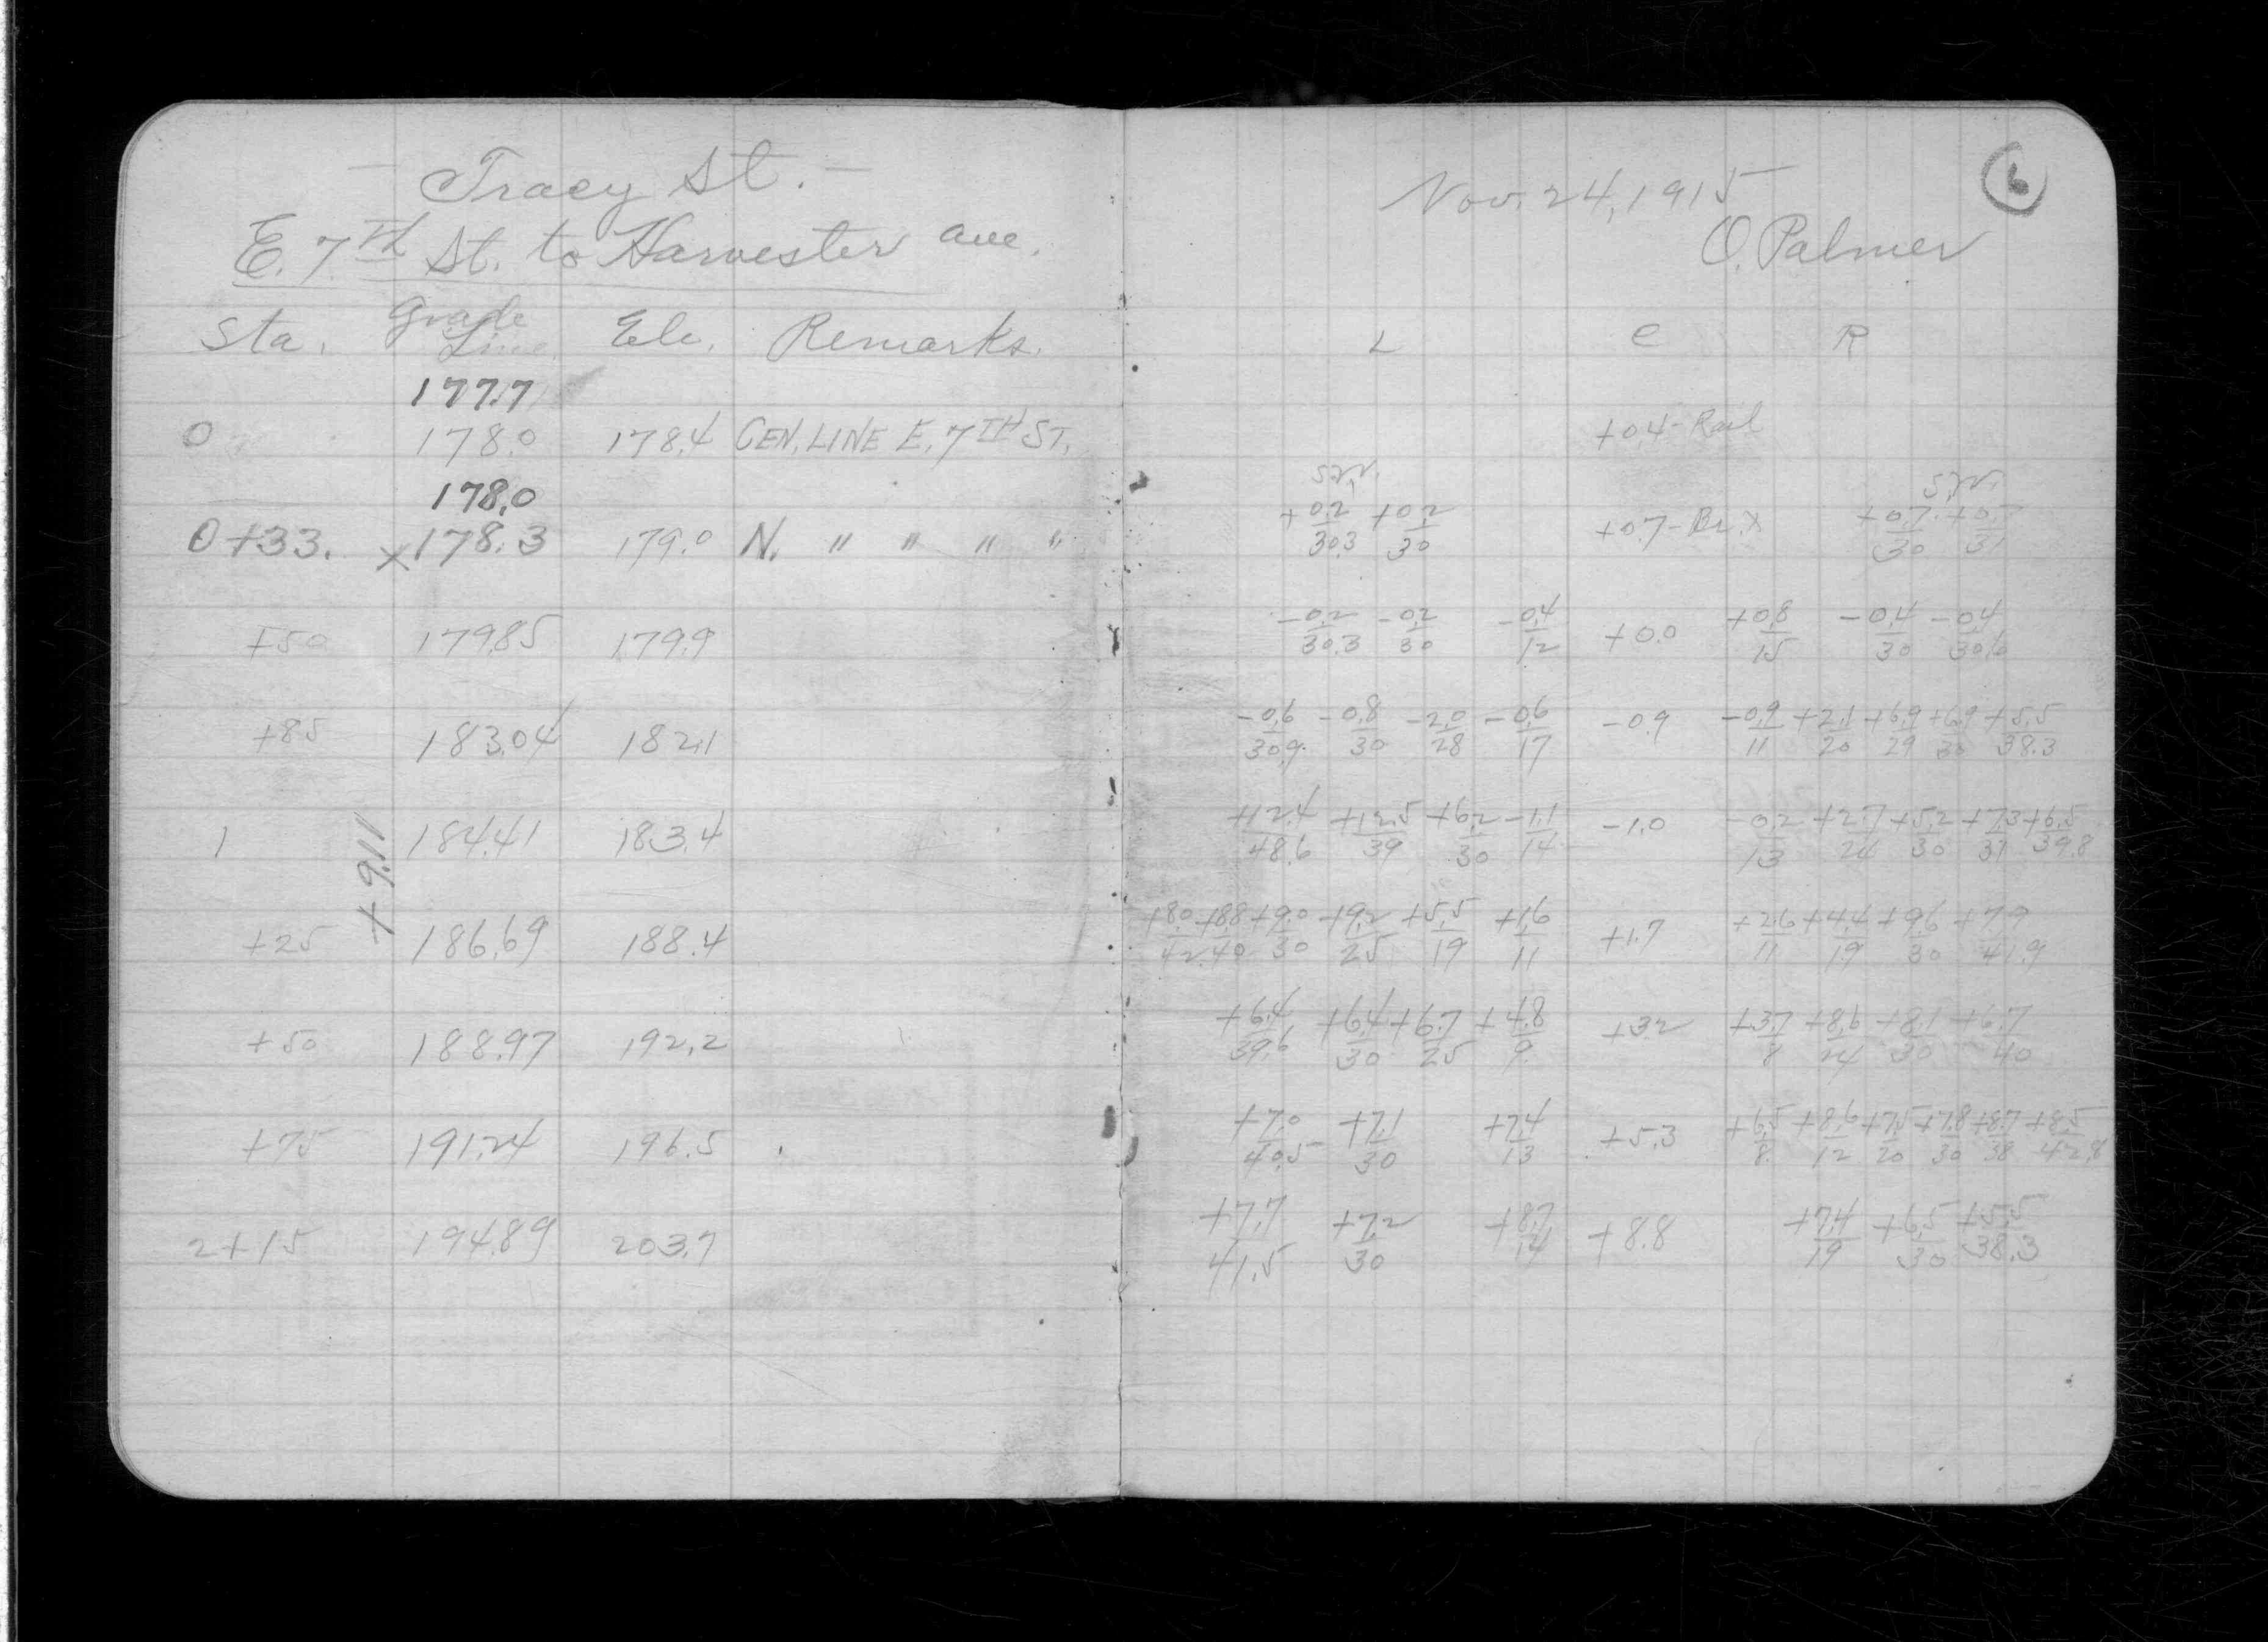 — Tracy St. —
E. 7TH St. to Harvester Ave.
Sta. Grade Line Ele. Remarks.
177.7
0 178.0 178.4 CEN. LINE E. 7TH ST.
178.0
0+33. x178.3 179.0 N. " " " "
+50 179.85 179.9
+85 183.04 182.1
1 184.41 183.4
+9.11
+25 186.69 188.4
+50 188.97 192.2
+75 191.24 196.5
2+15 194.89 203.7
6
Nov. 24, 1915
O. Palmer
L C R
+0.4-Rail
S.W. S.W.
+0.2 +0.2 +0.7-Br.x +0.7 +0.7
30.3 30 30 31
-0.2 -0.2 -0.4 +0.0 +0.8 -0.4 -0.4
30.3 30 12 15 30 30.6
-0.6 -0.8 -2.0 -0.6 -0.9 -0.9 +2.1 +6.9 +6.9 +5.5
30.9 30 28 17 11 20 29 30 38.3
+12.4 +12.5 +6.2 -1.1 -1.0 -0.2 +2.7 +5.2 +7.3 +6.5
48.6 39 30 14 13 24 30 37 39.8
+8.0 +8.8 +9.0 +9.2 +5.5 +1.6 +1.7 +2.6 +4.4 +9.6 +7.9
42 40 30 25 19 11 11 19 30 41.9
+6.4 +6.4 +6.7 +4.8 +3.2 +3.7 +8.6 +8.1 +6.7
39.6 30 25 9 8 24 30 40
+7.0 +7.1 +7.4 +5.3 +6.5 +8.6 +7.5 +7.8 +8.7 +8.5
40.5 30 13 8 12 20 30 38 42.8
+7.7 +7.2 +8.7 +8.8 +7.4 +6.5 +5.5
41.5 30 14 19 30 38.3